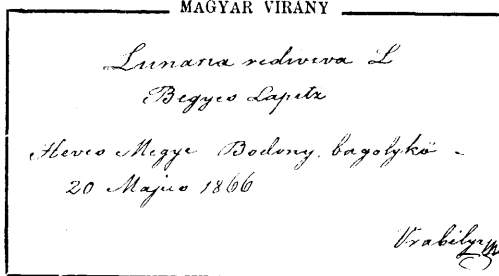 MAGYAR VIRÁNY
Lunaria rediviva L
Begyes Lapitz
Heves Megye Bodony. bagolykő -
20 Majus 1866
Vrabélyi M